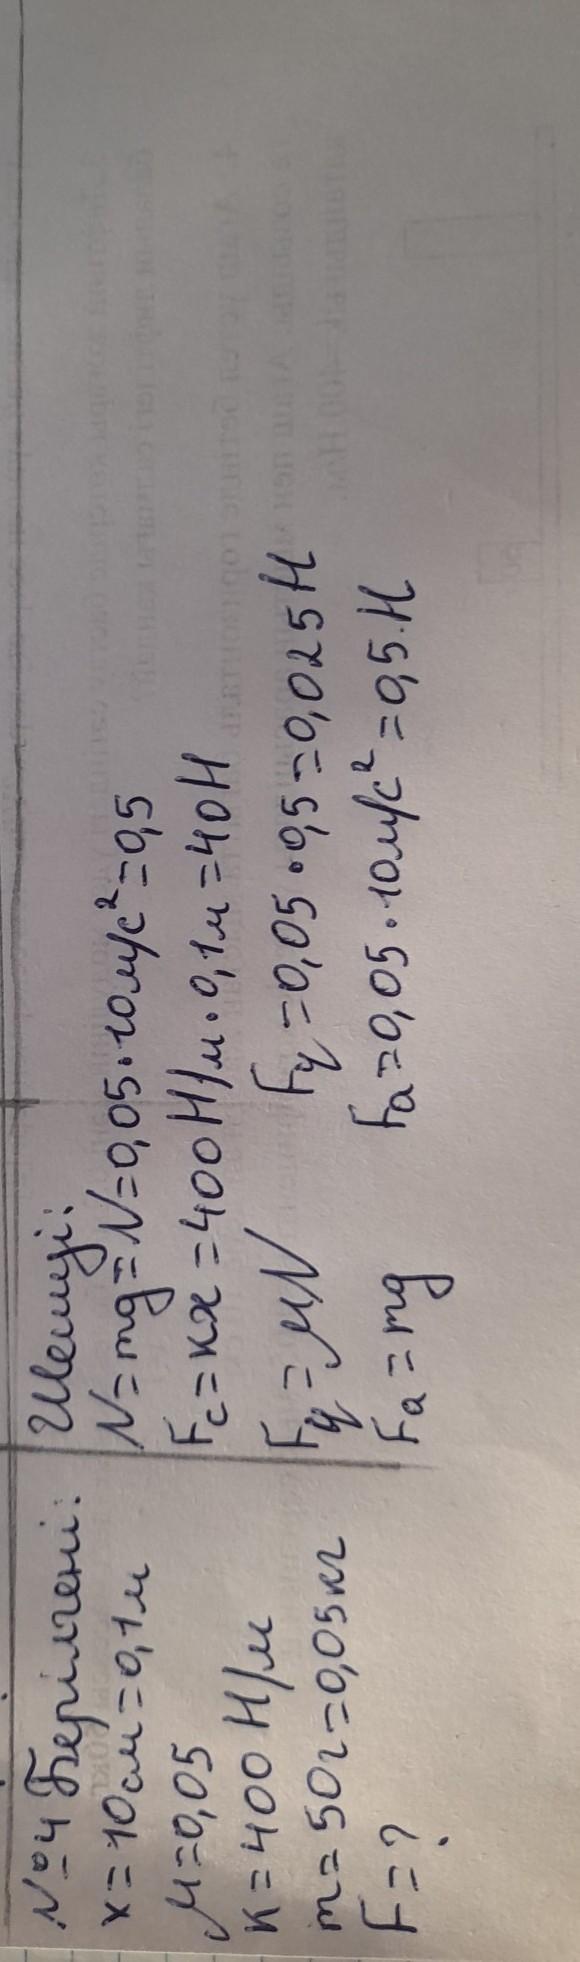 №4 Берілгені:
x=10см=0,1м
μ=0,05
к=400 Н/м
m=50г=0,05кг
F=?
Шешуі:
N=mg=N=0,05·10м/с²=0,5
Fс=кx=400Н/м·0,1м=40Н
Fү=μN Fү=0,05·0,5=0,025Н
Fа=mg Fа=0,05·10м/с²=0,5·Н